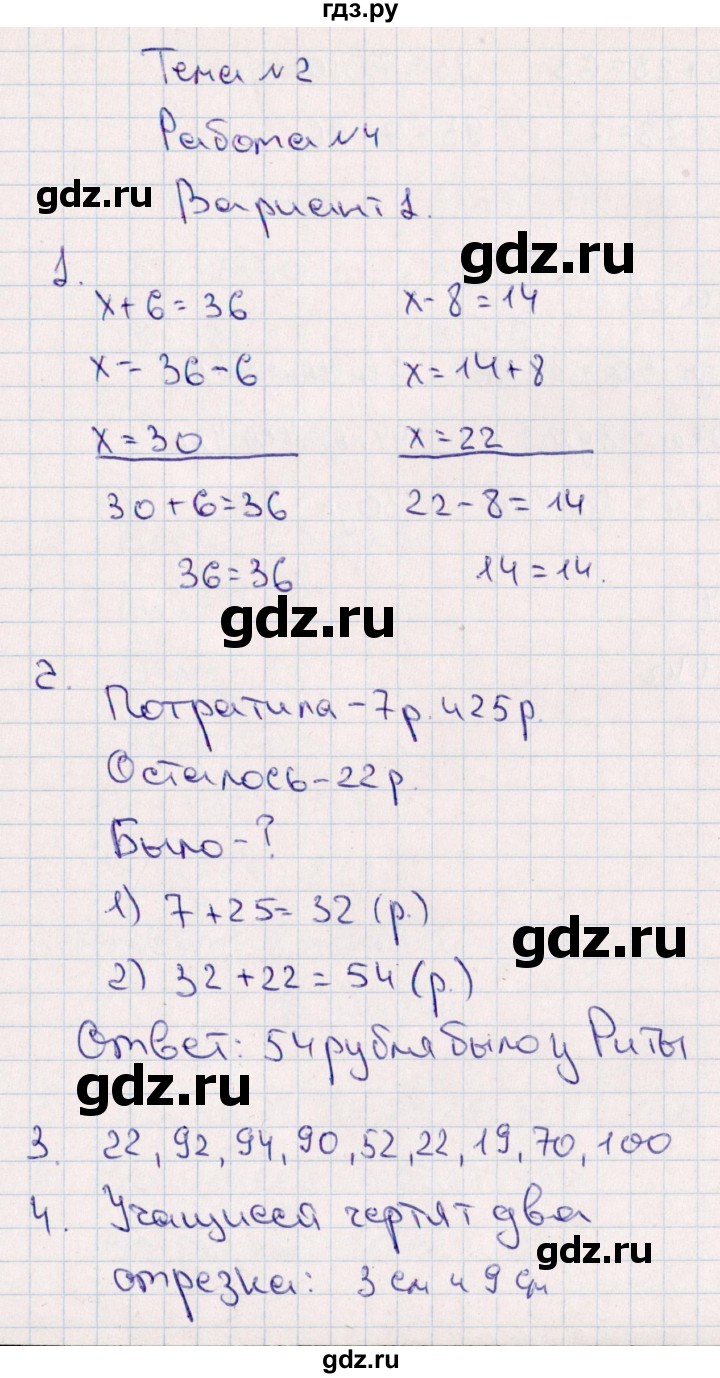 гдз.ру
Тема №2
Работа №4
gdz.ru
Вариант 1.
gdz.ru
1.
x+6=36 x-8=14
x=36-6 x=14+8
x=30 x=22
30+6=36 22-8=14
36=36 14=14.
gdz.ru
2.
Потратила-7р. и 25р.
Осталось-22р.
Было-?
1) 7+25=32 (р.)
gdz.ru
2) 32+22=54 (р.)
Ответ: 54 рубля было у Риты
gdz.ru
3. 22, 92, 94, 90, 52, 22, 19, 70, 100
4. Учащиеся чертят два
gdz.ru
отрезка: 3 см и 9 см
gdz.ru